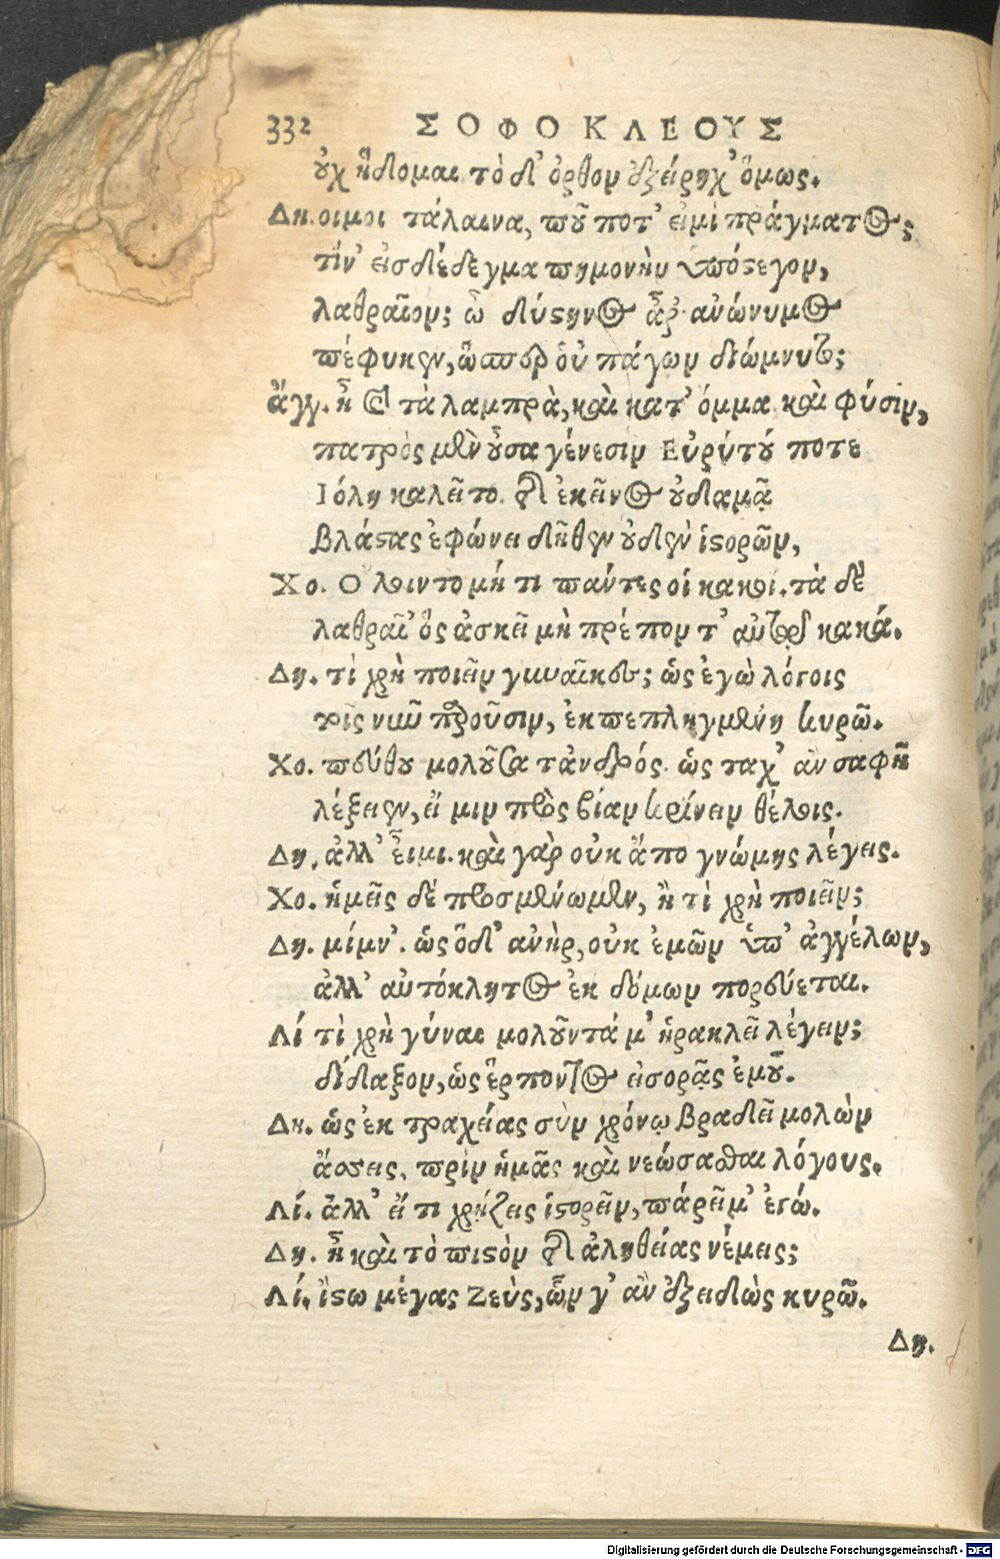 332 ΣΟΦΟΚΛΕΟΥΣ
οὐχ ἥδομαι. τὸ δ' ὀρθον ἐξείρηχ' ὅμως.
Δη. οιμοι τάλαινα, ποῦ ποτ' εἰμὶ πράγματος;
τίν' εἰσδέδεγμαι πημονὴν ὑπόστεγον,
λαθραῖον; ὦ δύστηνος ἆρ' ἀνώνυμος
πέφυκεν, ὥσπερ οὑπάγων διώμνυτο;
ἄγγ. ἦ καὶ τὰ λαμπρὰ, καὶ κατ' ὄμμα καὶ φύσιν,
πατρὸς μὲν οὖσα γένεσιν Εὐρύτου ποτε
Ἰόλη καλεῖτο. τῆς ἐκεῖνος οὐδαμᾷ
βλάστας ἐφώνει δῆθεν οὐδὲν ἱστορῶν,
Χο. Ὄλοιντο μή τι πάντες οἱ κακοί. τὰ δὲ
λαθραῖ' ὃς ἀσκεῖ μὴ πρέποντ' αὐτῷ κακά.
Δη. τὶ χρὴ ποιεῖν γυναῖκες; ὡς ἐγὼ λόγοις
τοῖς νῦν παροῦσιν, ἐκπεπληγμένη κυρῶ.
Χο. πεύθου μολοῦσα τἀνδρός. ὡς ταχ' ἂν σαφῆ
λέξειεν, εἴ μιν πρὸς βίαν κρίνειν θέλοις.
Δη. ἀλλ' εἶμι. καὶ γὰρ οὐκ ἄπο γνώμης λέγεις.
Χο. ἡμεῖς δὲ προσμένωμεν, ἢ τὶ χρὴ ποιεῖν;
Δη. μίμν'. ὡς ὅδ' ἀνὴρ, οὐκ ἐμῶν ὑπ' ἀγγέλων,
ἀλλ' αὐτόκλητος ἐκ δόμων πορεύεται.
Λί τὶ χρὴ γύναι μολοῦντά μ' ἡρακλεῖ λέγειν;
δίδαξον, ὡς ἕρποντος εἰσορᾷς ἐμοῦ.
Δη. ὡς ἐκ τραχείας σὺν χρόνῳ βραδεῖ μολὼν
ἄσσεις, πρὶν ἡμᾶς καὶ νεώσασθαι λόγους.
Λί. ἀλλ' εἴ τι χρῄζεις ἱστορεῖν, πάρειμ' ἐγώ.
Δη. ἦ καὶ τὸ πιστὸν τῆς ἀληθείας νέμεις;
Λί. ἴστω μέγας Ζεὺς, ὧν γ' ἂν ἐξειδὼς κυρῶ.
Δη.
Digitalisierung gefördert durch die Deutsche Forschungsgemeinschaft - DFG